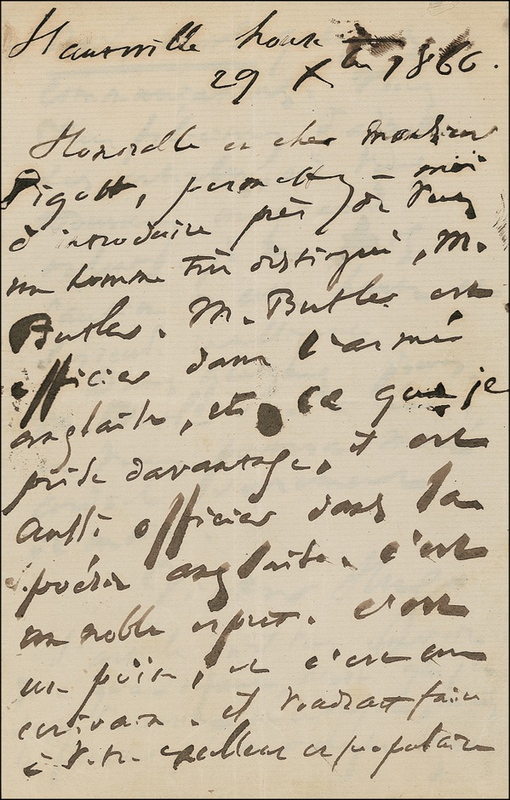 Hauteville house
29 Xbre 1866.
Honorable et cher Monsieur
Pigott, permettez-moi
d'introduire près de vous
un homme très distingué, M.
Butler. M. Butler est
officier dans l'armée
anglaise, et, ce que je
prise davantage, il est
aussi officier dans la
poésie anglaise. c'est
un noble esprit. c'est
un poëte, et c'est un
écrivain. il voudrait faire
à votre excellent et populaire